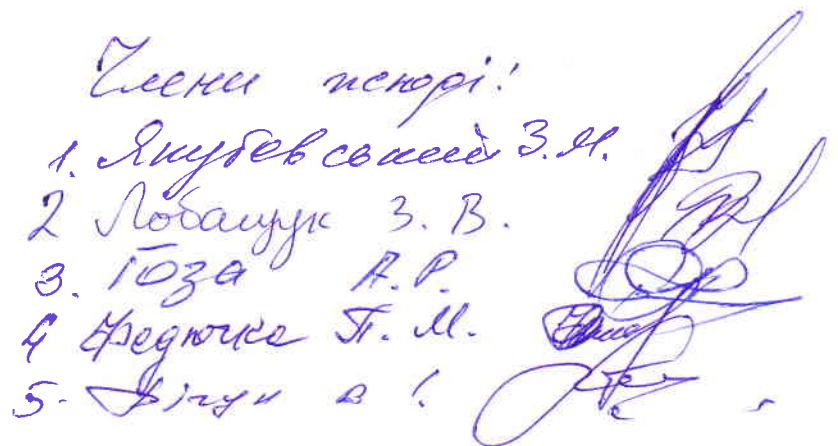 Члени журі:
1. Якубовський З.М.
2 Лобащук З. В.
3. Гоза А.Р.
4 Федючка П. М.
5.